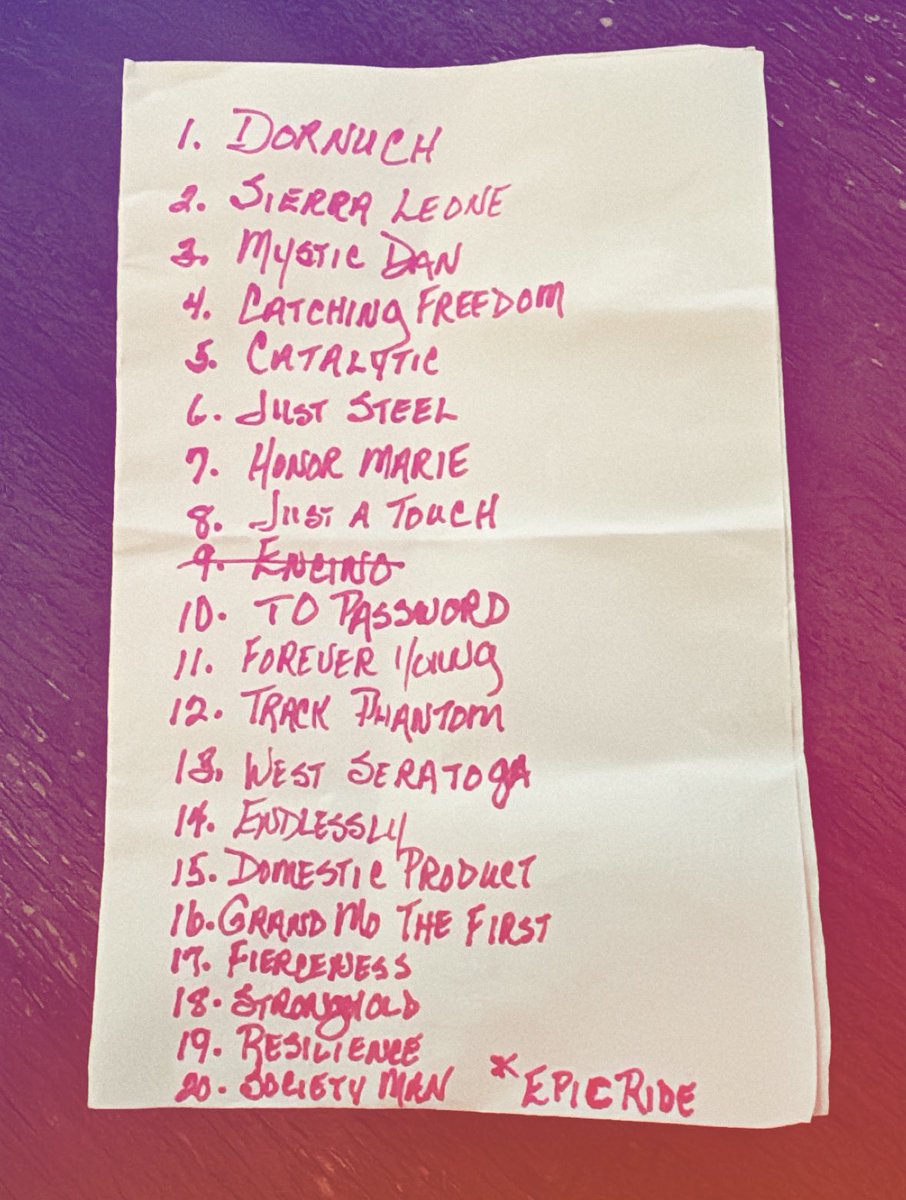 1. DORNUCH
2. SIERRA LEONE
3. MYSTIC DAN
4. CATCHING FREEDOM
5. CATALYTIC
6. JUST STEEL
7. HONOR MARIE
8. JUST A TOUCH
9. ENCINO
10. TO PASSWORD
11. FOREVER YOUNG
12. TRACK PHANTOM
13. WEST SERATOGA
14. ENDLESSLY
15. DOMESTIC PRODUCT
16. GRAND MO THE FIRST
17. FIERCENESS
18. STRONGHOLD
19. RESILIENCE
20. SOCIETY MAN *EPIC RIDE